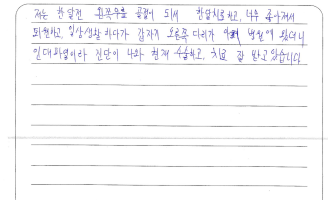 저는 한달전 왼쪽무릎 골절이 되서 한달치료하고, 너무 좋아져서
퇴원하고, 일상생활 하다가 갑자기 오른쪽 다리가 아파 병원에 왔더니
인대파열이라 진단이 나와 현재 수술하고, 치료 잘 받고 있습니다.